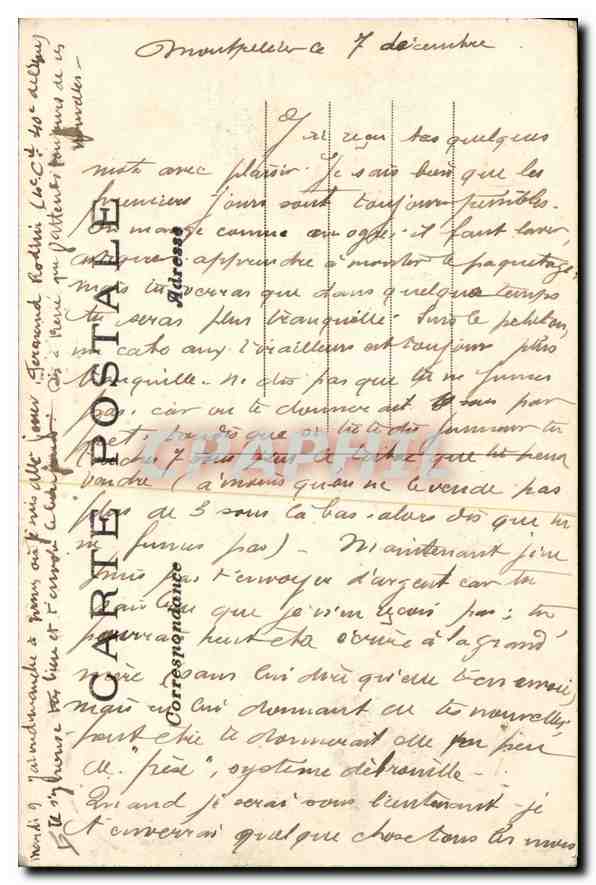 Montpellier le 7 décembre
J'ai reçu tes quelques
mots avec plaisir. Je sais bien que les
premiers jours sont toujours pénibles.
On mange comme ogres il faut laver,
apprendre à monter le paquetage;
mais tu verras que dans quelque temps
tu seras plus tranquille. Sur le peloton,
un cabo aux tirailleurs est toujours plus
tranquille. ne dis pas que tu ne fumes
pas, car on te donnerait sous par
prêt, tandis que si tu dis fumeur tu
7 sous plus le tabac que tu peux
vendre (à moins qu'on ne le vende pas
plus de 3 sous là bas. alors dis que tu
ne fumes pas) - Maintenant je ne
puis pas t'envoyer d'argent car tu
que je n'en reçois pas; tu
pourras peut être écrire à la grand
mère (sans lui dire qu'elle t'en envoie)
mais en lui donnant de tes nouvelles,
peut être te donnerait elle un peu
de "pèse", système débrouille -
Quand je serai sous lieutenant je
t'enverrai quelque chose tous les mois
mardi 9 dimanche à où je suis allé Fernand Rodhié (4e Cie 40e de ligne)
Il va bien et t'envoie le bonjour. Dis à René que j'attends toujours de ses
nouvelles -
CARTE POSTALE
Correspondance
Adresse
CPAPHIL